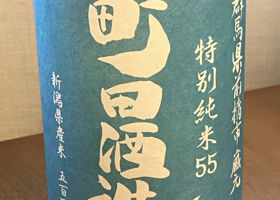 群馬県前橋市 蔵元
特別純米55
町田酒造
新潟県産米 五百万